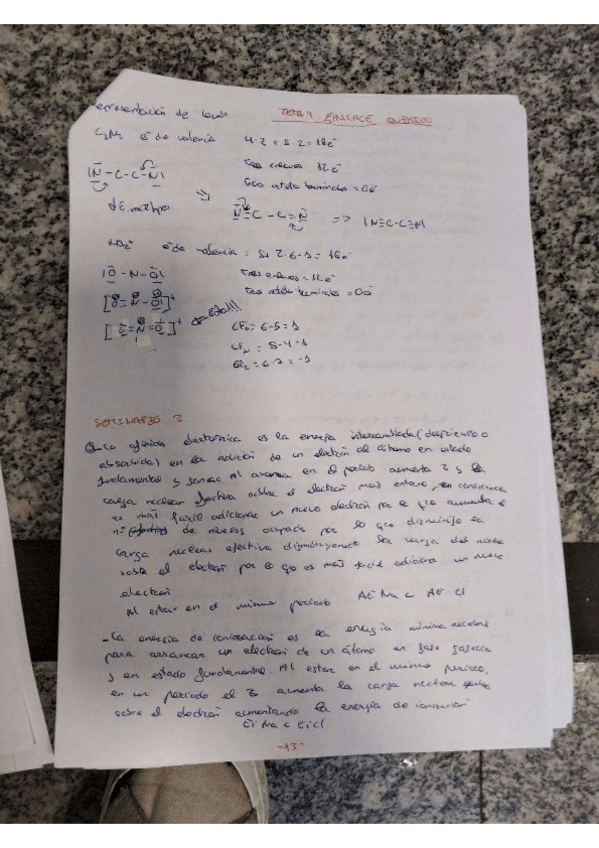 representación de Lewis TEMA 4 ENLACE QUÍMICO
C₂N₂ e⁻ de valencia 4·2 + 5·2 = 18e⁻
12e⁻
|N - C - C - N|
N = C - C = N => |N≡C-C≡N|
NO₂⁺ e⁻ de valencia: 5 + 2·6 - 1 = 16e⁻
|O - N - O|
[O = N - O|]⁺
[O = N = O]⁺
CF₀ = 6-5 = 1
CF_N = 5-4 = 1
= 6-7 = -1
SEMINARIO 2
La afinidad electrónica es la energía intercambiada (desprendida o
absorbida) en la adición de un electrón al átomo en estado
fundamental y gaseoso. Al avanzar en el período aumenta Z y la
carga nuclear efectiva sobre el electrón más externo, en consecuencia
es más fácil adicionar un nuevo electrón por lo que aumenta el
nº de niveles ocupados por lo que disminuye la
carga nuclear efectiva disminuyendo la carga del núcleo
sobre el electrón por lo que es más fácil adicionar un nuevo
electrón
Al estar en el mismo período AE Na < AE Cl
- La energía de ionización es la energía mínima necesaria
para arrancar un electrón de un átomo en fase gaseosa
y en estado fundamental. Al estar en el mismo período,
en un período el Z aumenta la carga nuclear
sobre el electrón aumentando la energía de ionización
Ei Na < Ei Cl
-13-